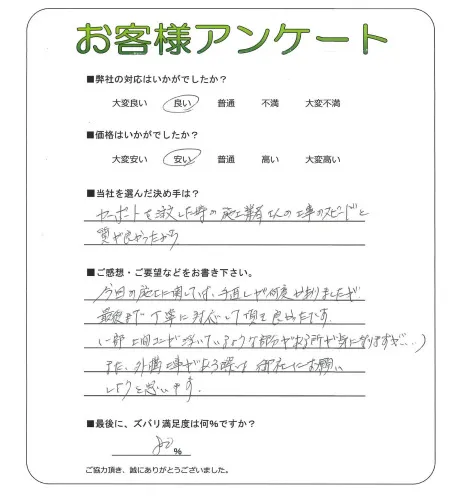 お客様アンケート
■弊社の対応はいかがでしたか？
大変良い 良い 普通 不満 大変不満
■価格はいかがでしたか？
大変安い 安い 普通 高い 大変高い
■当社を選んだ決め手は？
カーポートを注文した時の施工業者さんの工事のスピードと
質が良かったから
■ご感想・ご要望などをお書き下さい。
今回の施工に関しては、手直しが何度かありましたが
最後まで丁寧に対応して頂き良かったです。
(一部 土間コンが浮いているような部分がある所が気になりますが…)
また、外構工事がある際は御社にお願い
しようと思います。
■最後に、ズバリ満足度は何％ですか？
%
ご協力頂き、誠にありがとうございました。